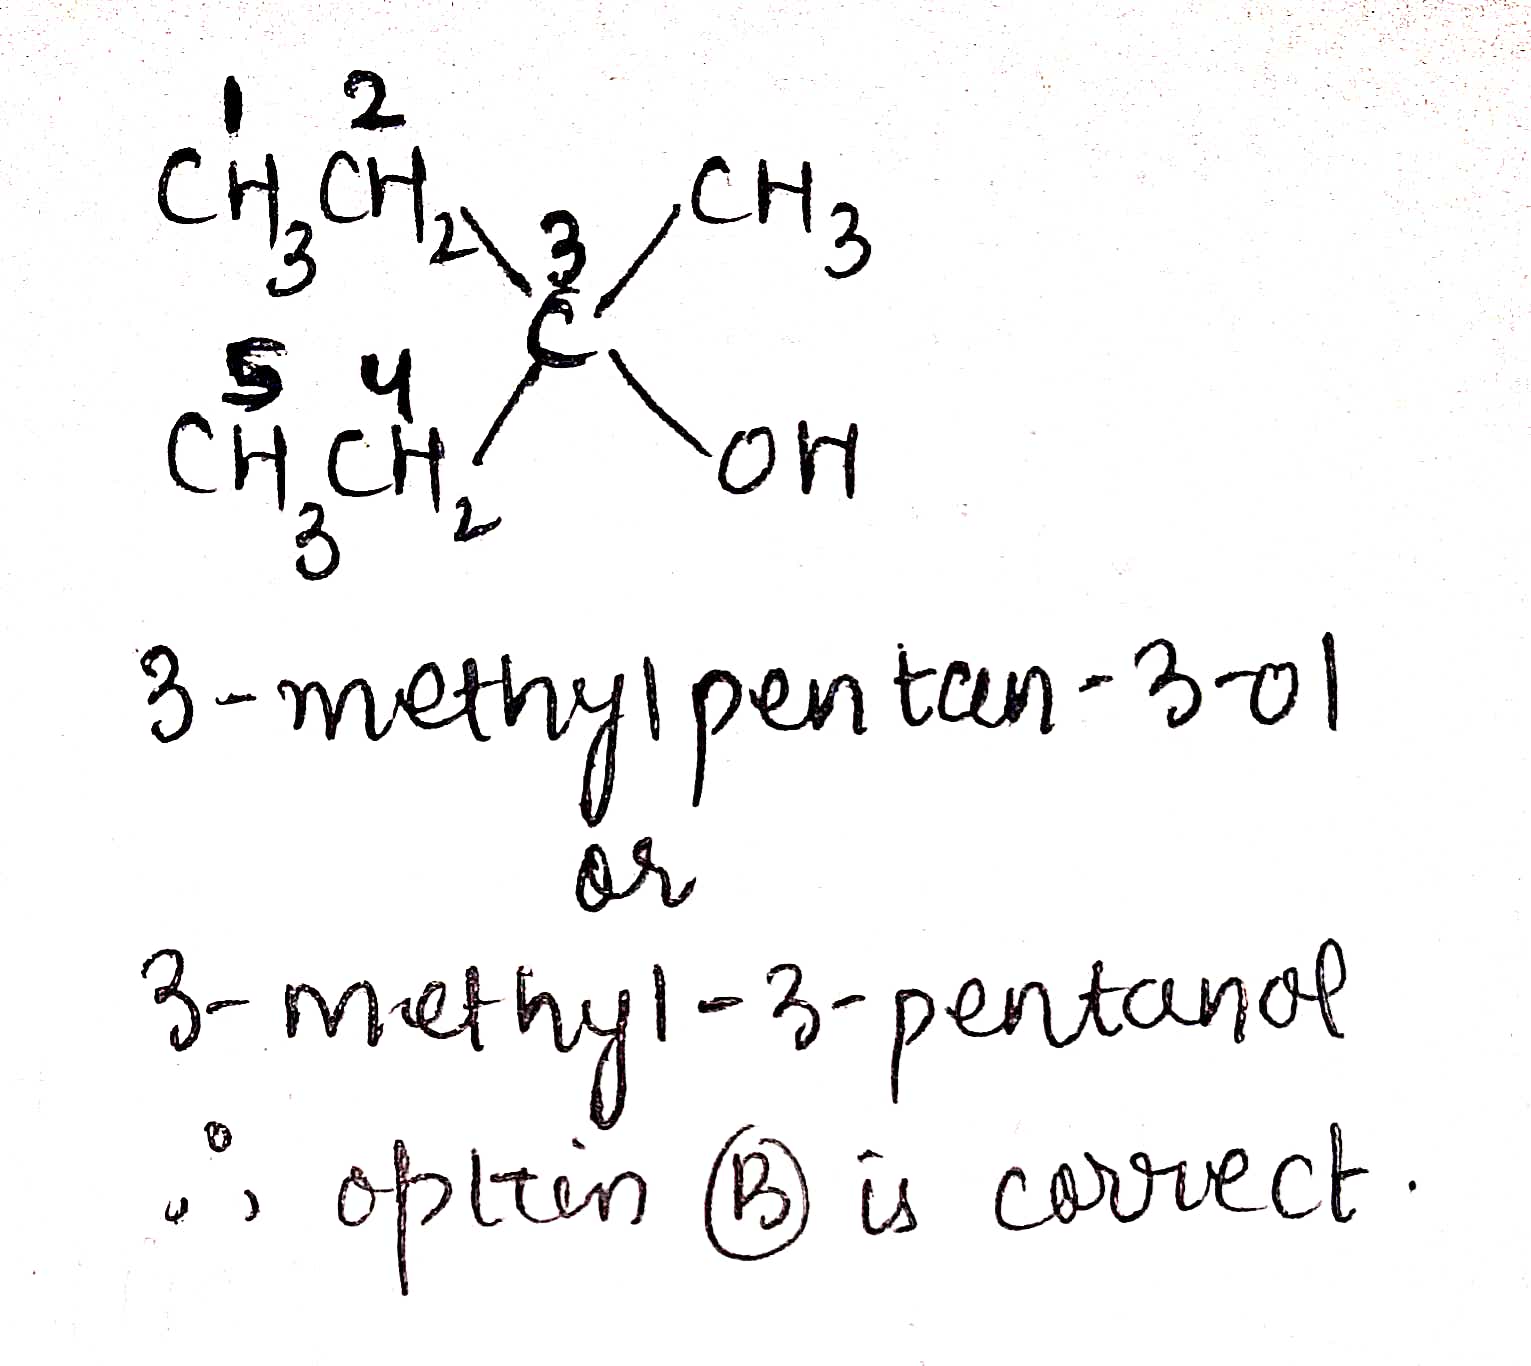 1 2
CH3CH2 3 CH3
C
5 4
CH3CH2 OH
3-methylpentan-3-ol
or
3-methyl-3-pentanol
∴, option B is correct.